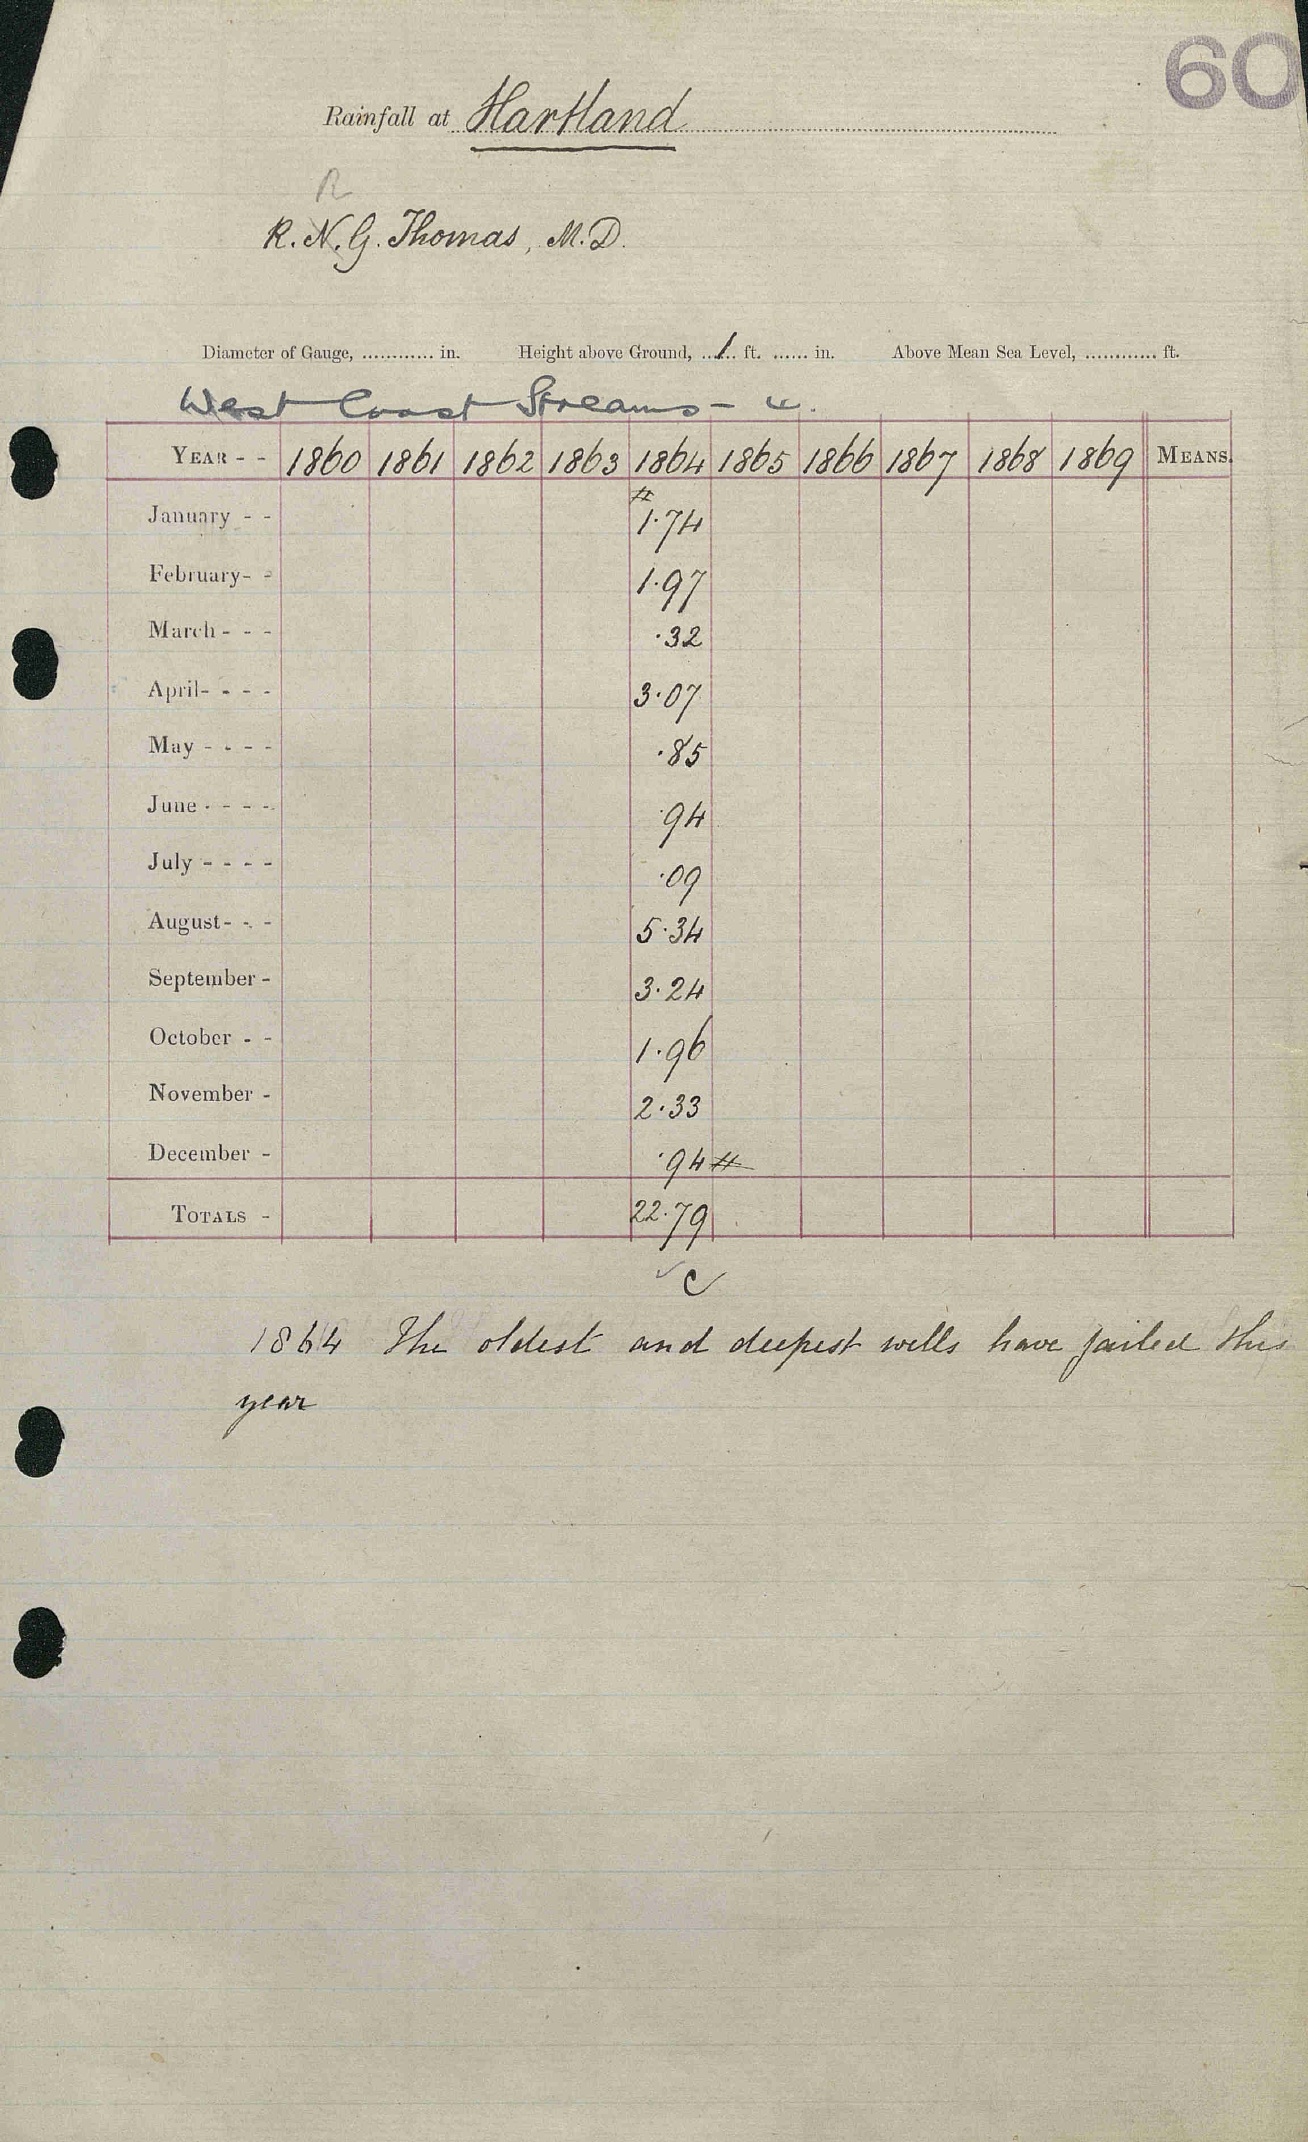 60
Rainfall at Hartland
R
R. N. G. Thomas, M.D.
Diameter of Gauge, ............ in. Height above Ground, ...1... ft. ...... in. Above Mean Sea Level, ............ ft.
West Coast Streams - 4.
YEAR - - 1860 1861 1862 1863 1864 1865 1866 1867 1868 1869 MEANS.
#
January - - 1.74
February - - 1.97
March - - - .32
April - - - - 3.07
May - - - - .85
June - - - - .94
July - - - - .09
August - - - 5.34
September - 3.24
October - - 1.96
November - 2.33
December - .94 #
TOTALS - 22.79
✓ C
1864 The oldest and deepest wells have failed this
year